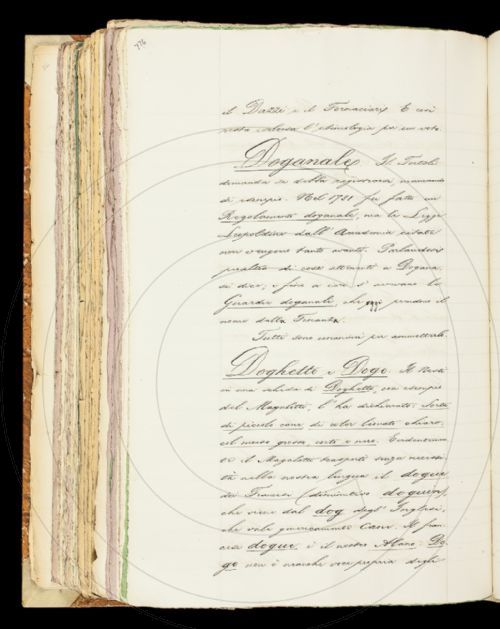 776
il Dazzi e il Fornaciari. E così
resta intesa l'etimologia per un voto.
Doganale. Il Tortoli
domanda se debba registrarsi, mancando
di esempio. Nel 1781 fu fatto un
Regolamento doganale, ma le Leggi
Leopoldine dall'Accademia citate
non vengono tanto avanti. Parlandosi
peraltro di cose attenenti a Dogana,
si dice; e fino a ieri s'avevano le
Guardie doganali, che oggi prendono il
nome dalla Finanza.
Tutti sono unanimi per ammetterlo.
Doghetto e Dogo. Il
in una scheda di Doghetto, con esempio
del Magalotti, l'ha dichiarato: Sorta
di piccolo cane, di color lionato chiaro,
col muso grosso, corto e nero.
il Magalotti trasportò senza necessi-
tà nella nostra lingua il dogue
dei Francesi (diminutivo doguin),
che viene dal dog degl'Inglesi,
che vale genericamente Cane. Il fran-
cese dogue, è il nostro Alano; Do-
go non è neanche voce propria degli